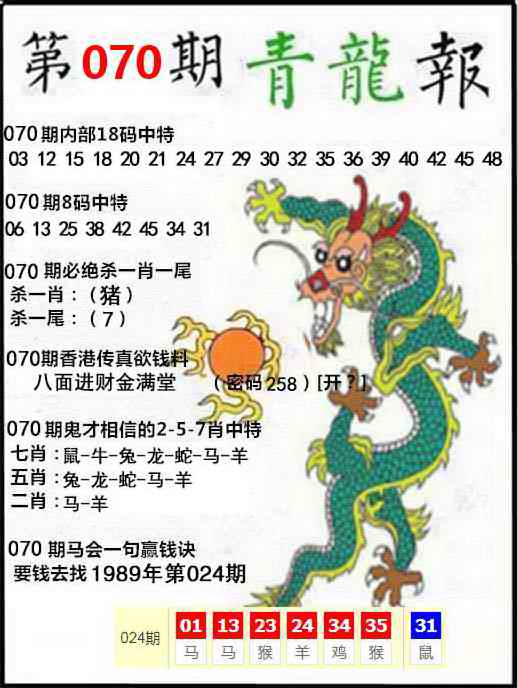 第070期青龍報
070期内部18码中特
03 12 15 18 20 21 24 27 29 30 32 35 36 39 40 42 45 48
070期8码中特
06 13 25 38 42 45 34 31
070 期必绝杀一肖一尾
杀一肖：（猪）
杀一尾：（7）
070期香港传真欲钱料
八面进财金满堂 （密码258）[开？]
070期鬼才相信的2-5-7肖中特
七肖：鼠-牛-兔-龙-蛇-马-羊
五肖：兔-龙-蛇-马-羊
二肖：马-羊
070 期马会一句赢钱诀
要钱去找1989年第024期
024期 01 13 23 24 34 35 31
马 马 猴 羊 鸡 猴 鼠